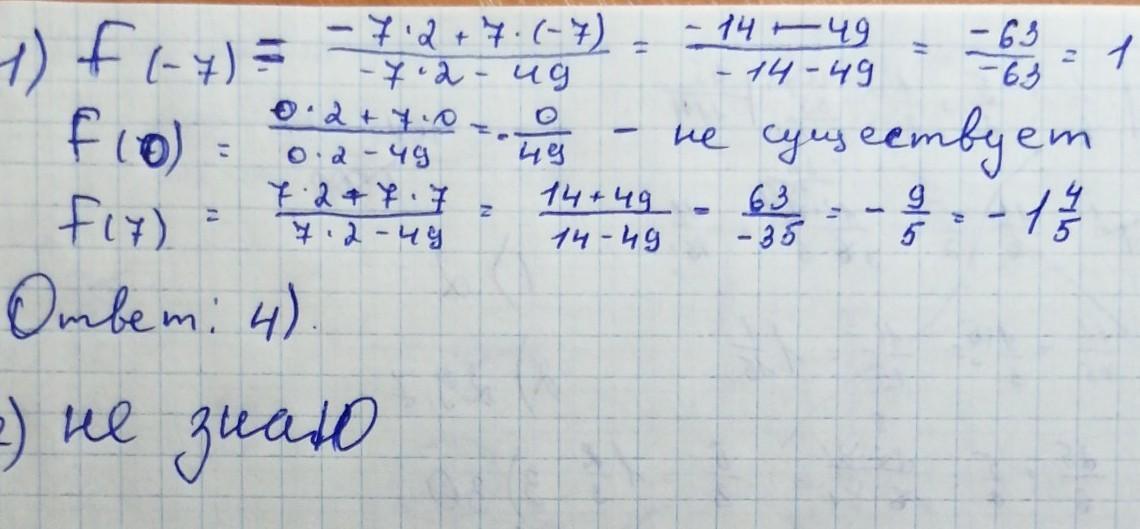 1) f(-7) = \frac{-7·2+7·(-7)}{-7·2-49} = \frac{-14+-49}{-14-49} = \frac{-63}{-63} = 1
f(0) = \frac{0·2+7·0}{0·2-49} = -\frac{0}{49} - не существует
f(7) = \frac{7·2+7·7}{7·2-49} = \frac{14+49}{14-49} = \frac{63}{-35} = -\frac{9}{5} = -1\frac{4}{5}
Ответ: 4).
2) не знаю